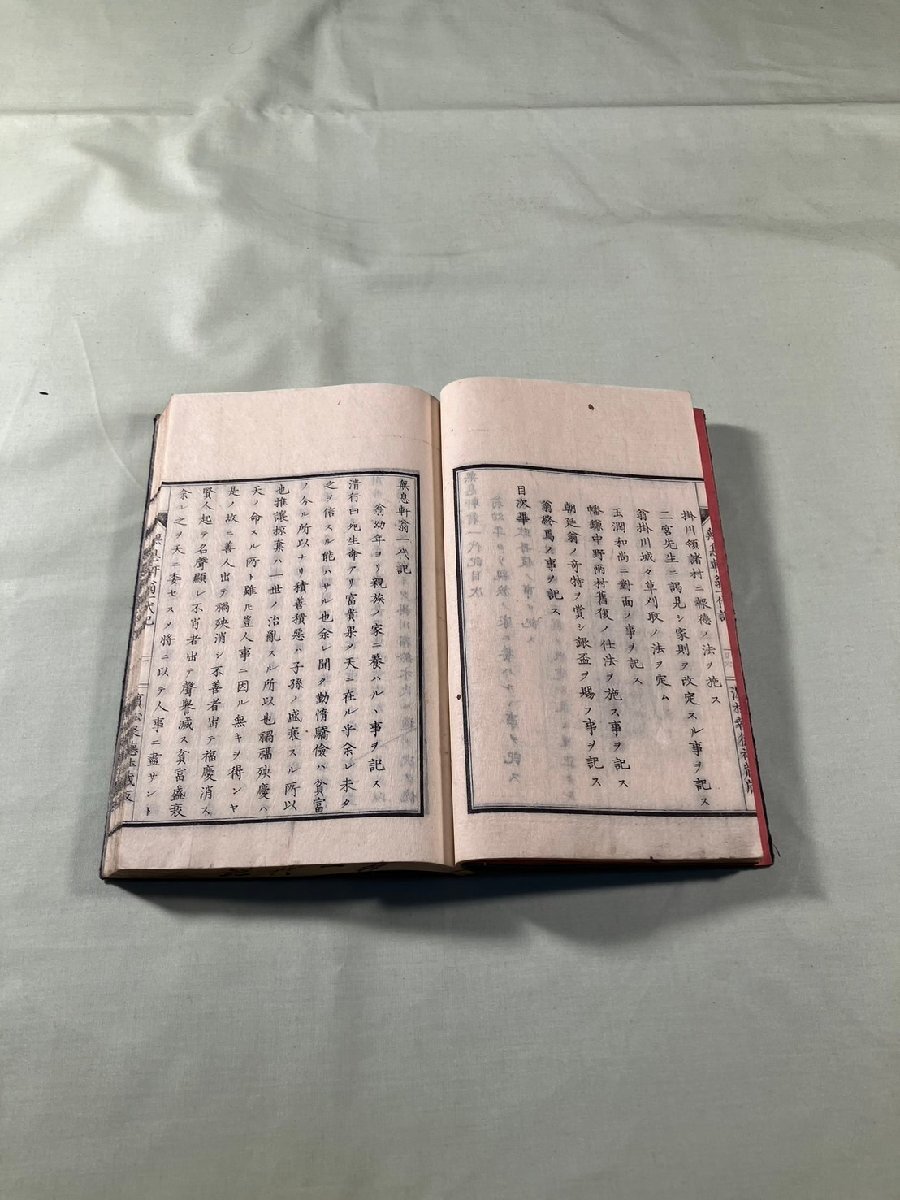 掛川領諸村ニ報徳ノ法ヲ施ス
二宮先生ニ謁見シ家則ヲ改定スル事ヲ記ス
翁掛川城々草刈取ノ法ヲ定ム
玉潤和尚ニ對面ノ事ヲ記ス
中野 村舊復ノ仕法ヲ施ス事ヲ記ス
朝廷翁ノ奇特ヲ賞シ銀盃ヲ賜ノ事ヲ記ス
翁終焉ノ事ヲ記ス
目次畢
無息軒翁一代記
翁幼年ヨリ親族ノ家ニ養ハルヽ事ヲ記ス
先生命アリ富貴果ノ天ニ在ル乎余レ未タ
之ヲ信スル能ハサル也余レ聞ク勤惰驕儉ハ貧富
ノ分ル所以ナリ積善積惡ハ子孫ノ盛衰スル所以
也推讓掠奪ハ一世ノ治亂スル所以也禍福殃慶ハ
天ノ命スル所ト雖𪜈豈人事ニ因ル無キヲ得ンヤ
是ノ故ニ善人出テ禍殃消シ不善者出テ福慶消ス
賢人起テ名聲顯レ不肖者出テ聲譽滅ス貧富盛衰
余レ之ヲ天ニ委セス將ニ以テ人事ニ盡サント